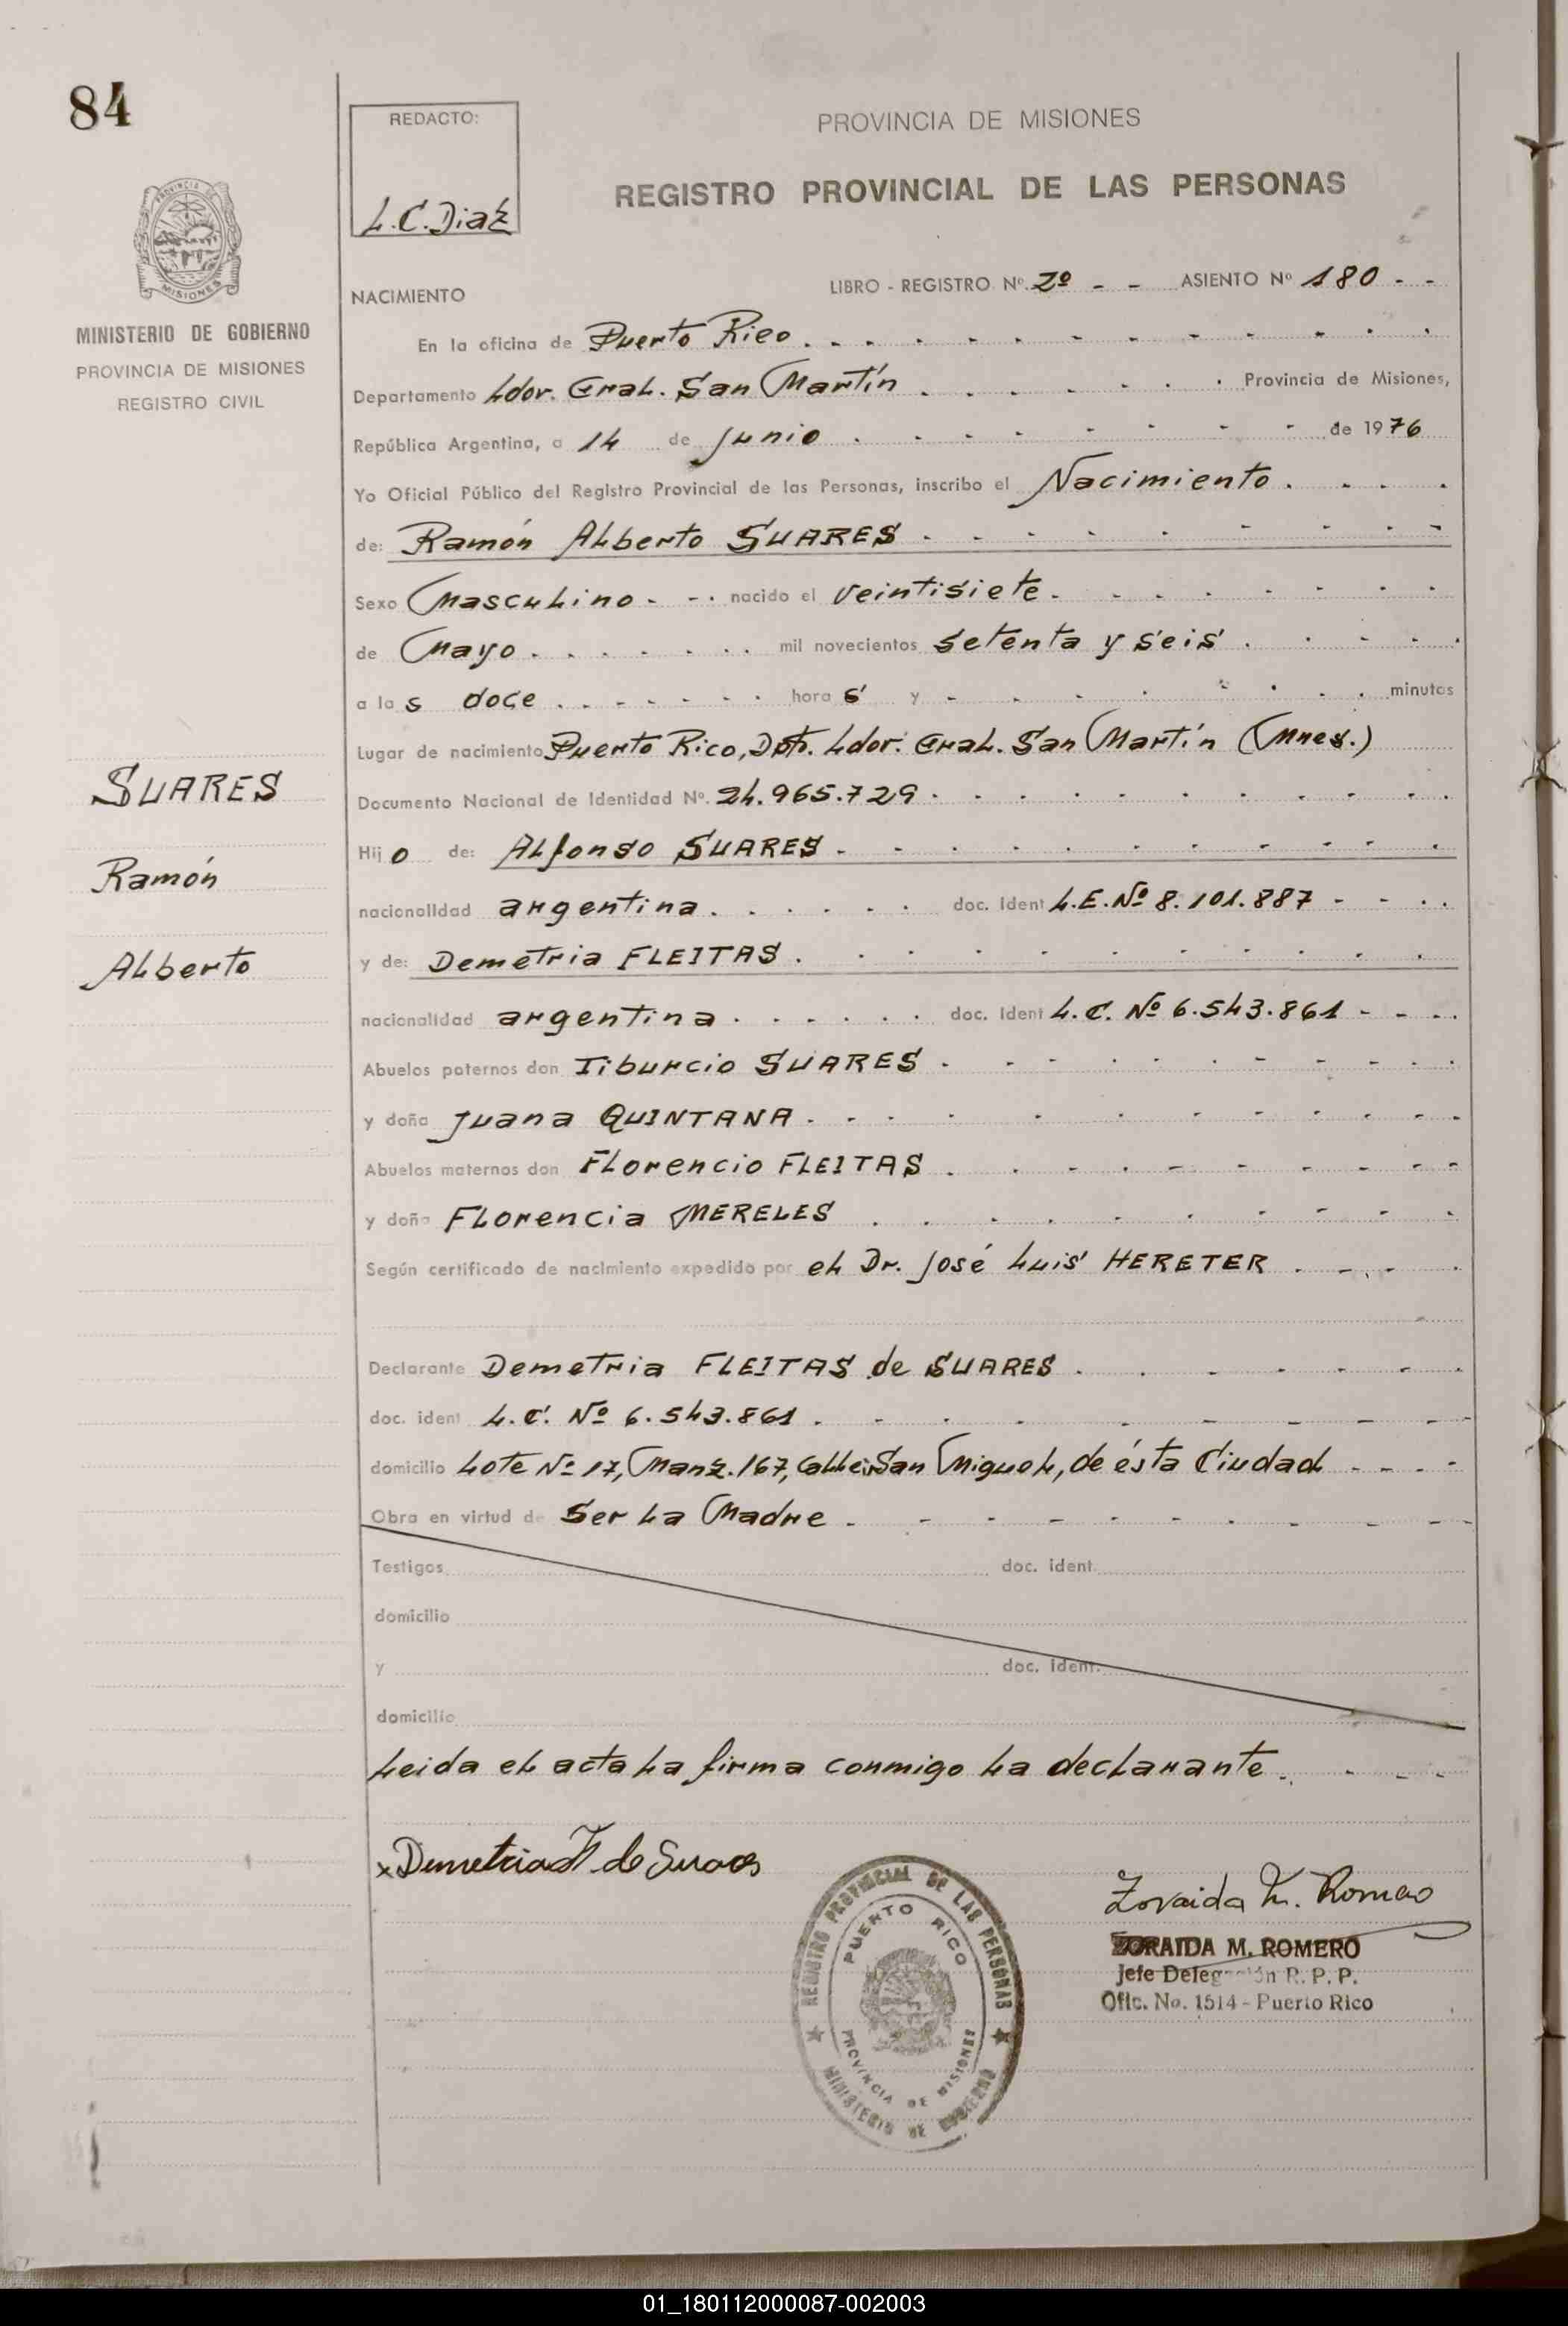 84
REDACTO:
L.C.Diaz
PROVINCIA DE MISIONES
REGISTRO PROVINCIAL DE LAS PERSONAS
PROVINCIA DE
MISIONES
MINISTERIO DE GOBIERNO
PROVINCIA DE MISIONES
REGISTRO CIVIL
NACIMIENTO LIBRO - REGISTRO Nº. 2º - - ASIENTO Nº 180 - -
En la oficina de Puerto Rico
Departamento Ldor. Gral. San Martín Provincia de Misiones,
República Argentina, a 14 de Junio de 1976
Yo Oficial Público del Registro Provincial de las Personas, inscribo el Nacimiento
de: Ramón Alberto SUARES
Sexo Masculino nacido el veintisiete
de Mayo mil novecientos setenta y seis
a las doce horas y - minutos
Lugar de nacimiento Puerto Rico, Dpto. Ldor. Gral. San Martín (Mnes.)
Documento Nacional de Identidad Nº. 24.965.729
Hijo de: Alfonso SUARES
nacionalidad argentina doc. ident L.E. Nº 8.101.887
y de: Demetria FLEITAS
nacionalidad argentina doc. ident L.C. Nº 6.543.861
Abuelos paternos don Tiburcio SUARES
y doña Juana QUINTANA
Abuelos maternos don Florencio FLEITAS
y doña Florencia MERELES
Según certificado de nacimiento expedido por el Dr. José Luis HERETER
Declarante Demetria FLEITAS de SUARES
doc. ident L.C. Nº 6.543.861
domicilio Lote Nº 17, Manz. 167, Calle: San Miguel, de ésta Ciudad
Obra en virtud de ser la Madre
Testigos doc. ident.
domicilio
y doc. ident.
domicilio
Leida el acta la firma conmigo la declarante
SUARES
Ramón
Alberto
x Demetria F de Suares
Zoraida M. Romero
ZORAIDA M. ROMERO
Jefe Delegación R. P. P.
Ofic. No. 1514 - Puerto Rico
REGISTRO PROVINCIAL DE LAS PERSONAS
PUERTO RICO
PROVINCIA DE MISIONES
MINISTERIO DE GOBIERNO
01_180112000087-002003